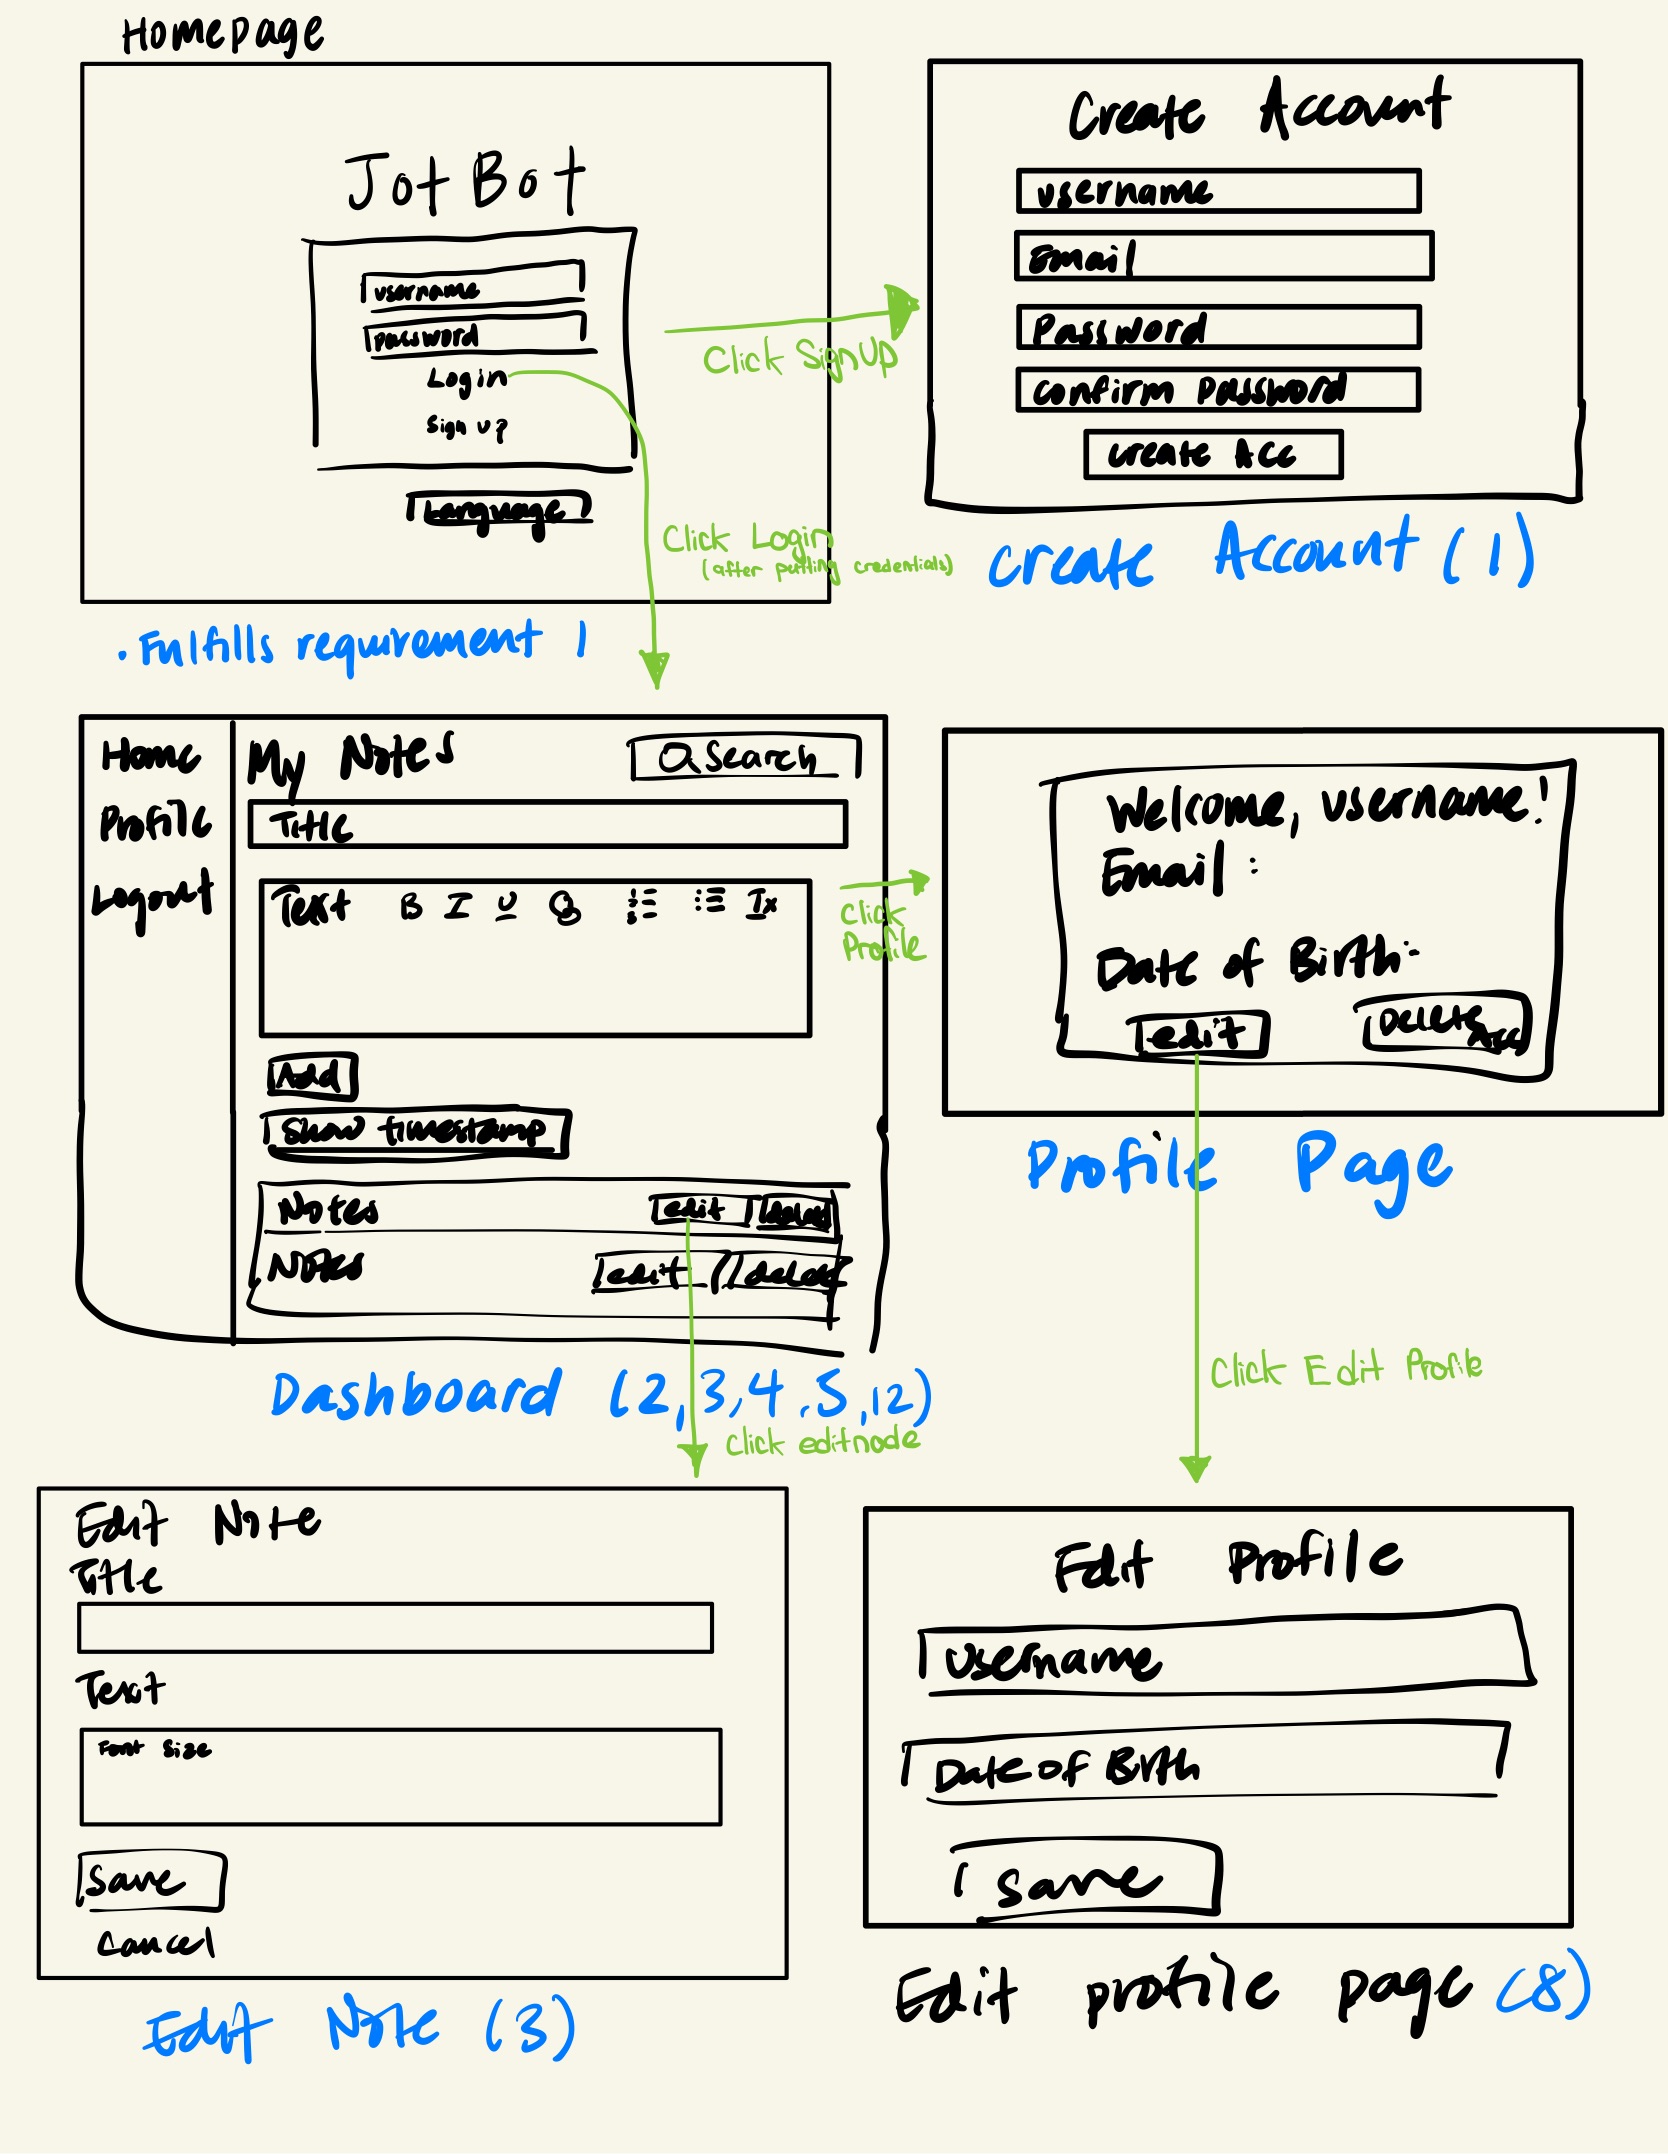 Homepage
JotBot
username
password
Login
Sign up
Language
Click SignUp
Click Login
(after putting credentials)
• Fulfills requirement 1
Create Account
username
Email
Password
confirm password
create Acc
Create Account (1)
Home
Profile
Logout
My Notes
Search
Title
Text B I U
Tx
Add
Show timestamp
Notes edit delete
Notes edit delete
Dashboard (2,3,4,5,12)
Click Profile
Welcome, username!
Email :
Date of Birth:
edit Delete Acc
Profile Page
Click editnode
Click Edit Profile
Edit Note
Title
Text
Font Size
Save
Cancel
Edit Note (3)
Edit Profile
Username
Date of Birth
save
Edit profile page (8)